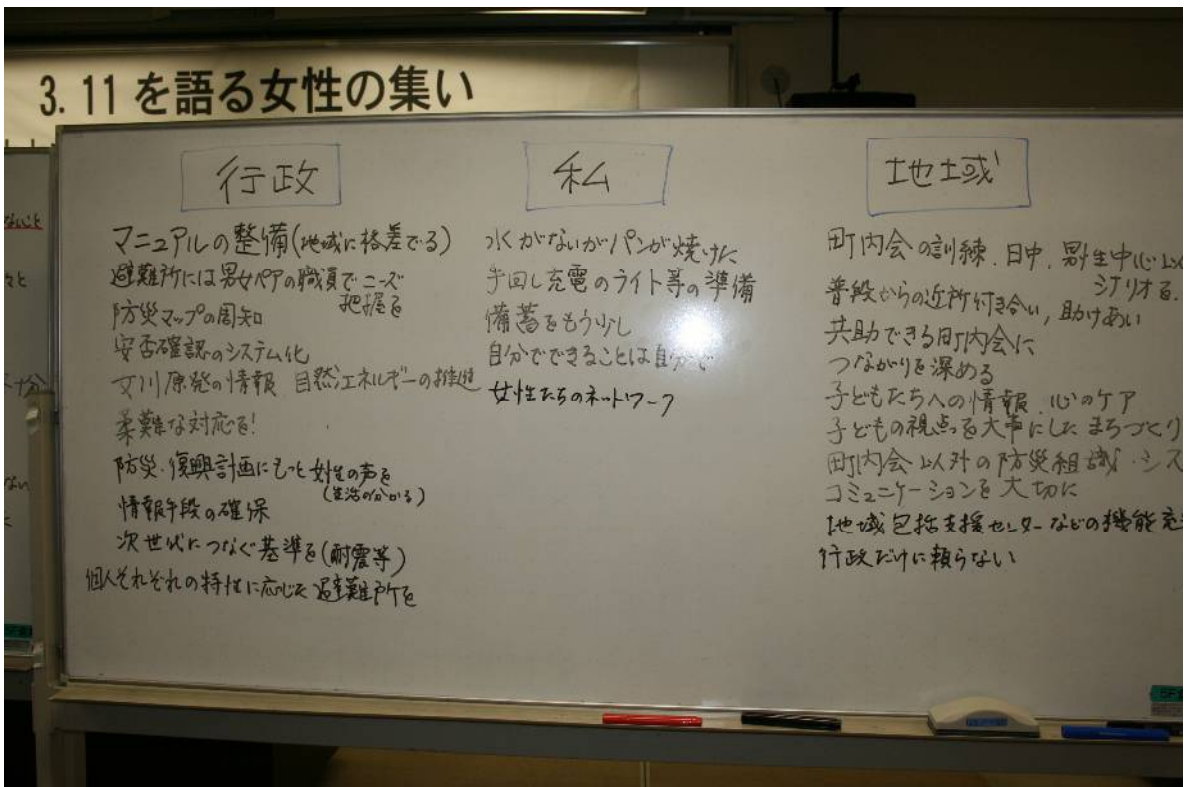 3.11を語る女性の集い
行政
マニュアルの整備(地域に格差でる)
避難所には男女ペアの職員でニーズ
把握を
防災マップの周知
安否確認のシステム化
女川原発の情報 自然エネルギーの推進
柔難な対応を!
防災・復興計画にもっと女性の声を
(生活の分かる)
情報手段の確保
次世代につなぐ基準を(耐震等)
個人それぞれの特性に応じた避難所を
私
水がないがパンが焼けた
手回し充電のライト等の準備
備蓄をもう少し
自分でできることは自分で
女性たちのネットワーク
地域
町内会の訓練、日中、男性中心以
シナリオを
普段からの近所付き合い,助けあい
共助できる町内会に
つながりを深める
子どもたちへの情報、心のケア
子どもの視点を大事にしたまちづくり
町内会以外の防災組識・シス
コミュニケーションを大切に
地域包括支援センターなどの機能充
行政だけに頼らない